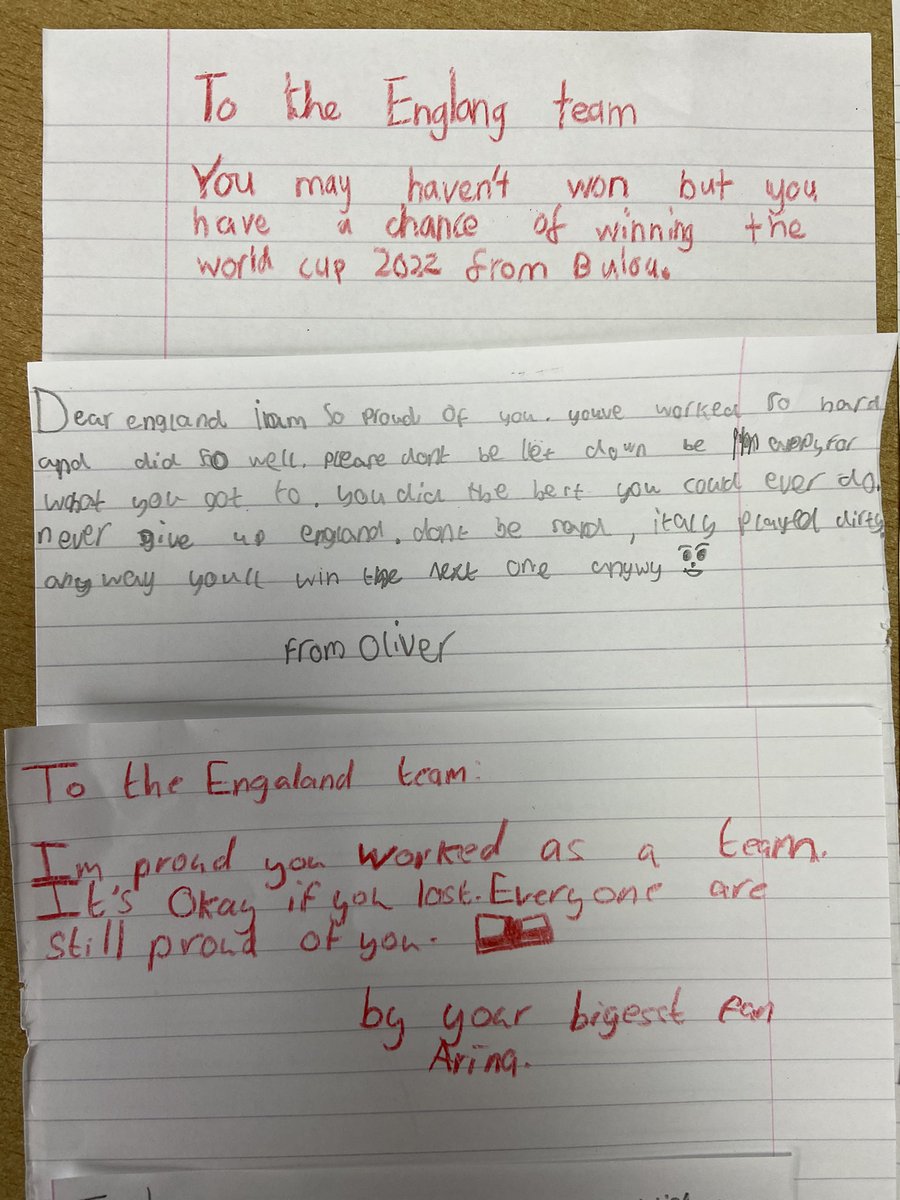 To the Englang team
You may haven't won but you
have a chance of winning the
world cup 2022 from Bulou.
Dear england iram so proud of you. youve worked so hard
and did so well. please dont be let down be for
what you got to. you did the best you coud ever do.
never give up england. dont be sard, italy played dirty
any way youll win the next one anywy
from Oliver
To the Engaland team:
Im proud you worked as a team.
It's Okay if you lost. Everyone are
still proud of you.
by your bigesst fan
Arina.